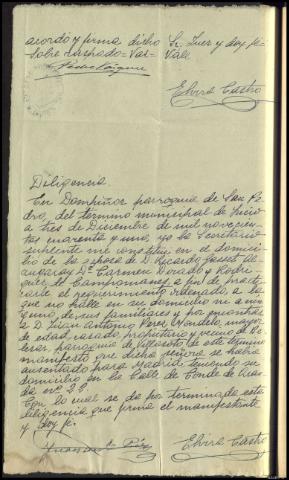 acordó y firma dicho Sr. Juez y doy fé-
Sobre raspado=Vas= Vale
Elvira Castro
Diligencia
En Dompiñor parroquia de San Pe-
dro, del termino municipal de
a tres de Diciembre de mil novecien-
tos cuarenta y uno, yo la Secretario
suplente me constitui en el domicilio
de la esposa de Ricardo Gasset Al-
zugaray Dª Carmen Dorado y Rodri-
guez de Campomanes a fin de practi-
carle el requerimiento ordenado y se
que no halle en su domicilio ni a nin-
guno de sus familiares y por encontrar
a D. Juan Antonio Pérez Mondelo, mayor
de edad, casado, propietario y vecino de
parroquia de Villaosto de este termino
manifesto que dicha señora se habia
ausentado para Madrid teniendo su
domicilio en la calle de Conde de
nº 22
Con lo cual se da por terminada esta
diligencia que firma el manifestante
y doy fé.
Juan A. Pérez Elvira Castro